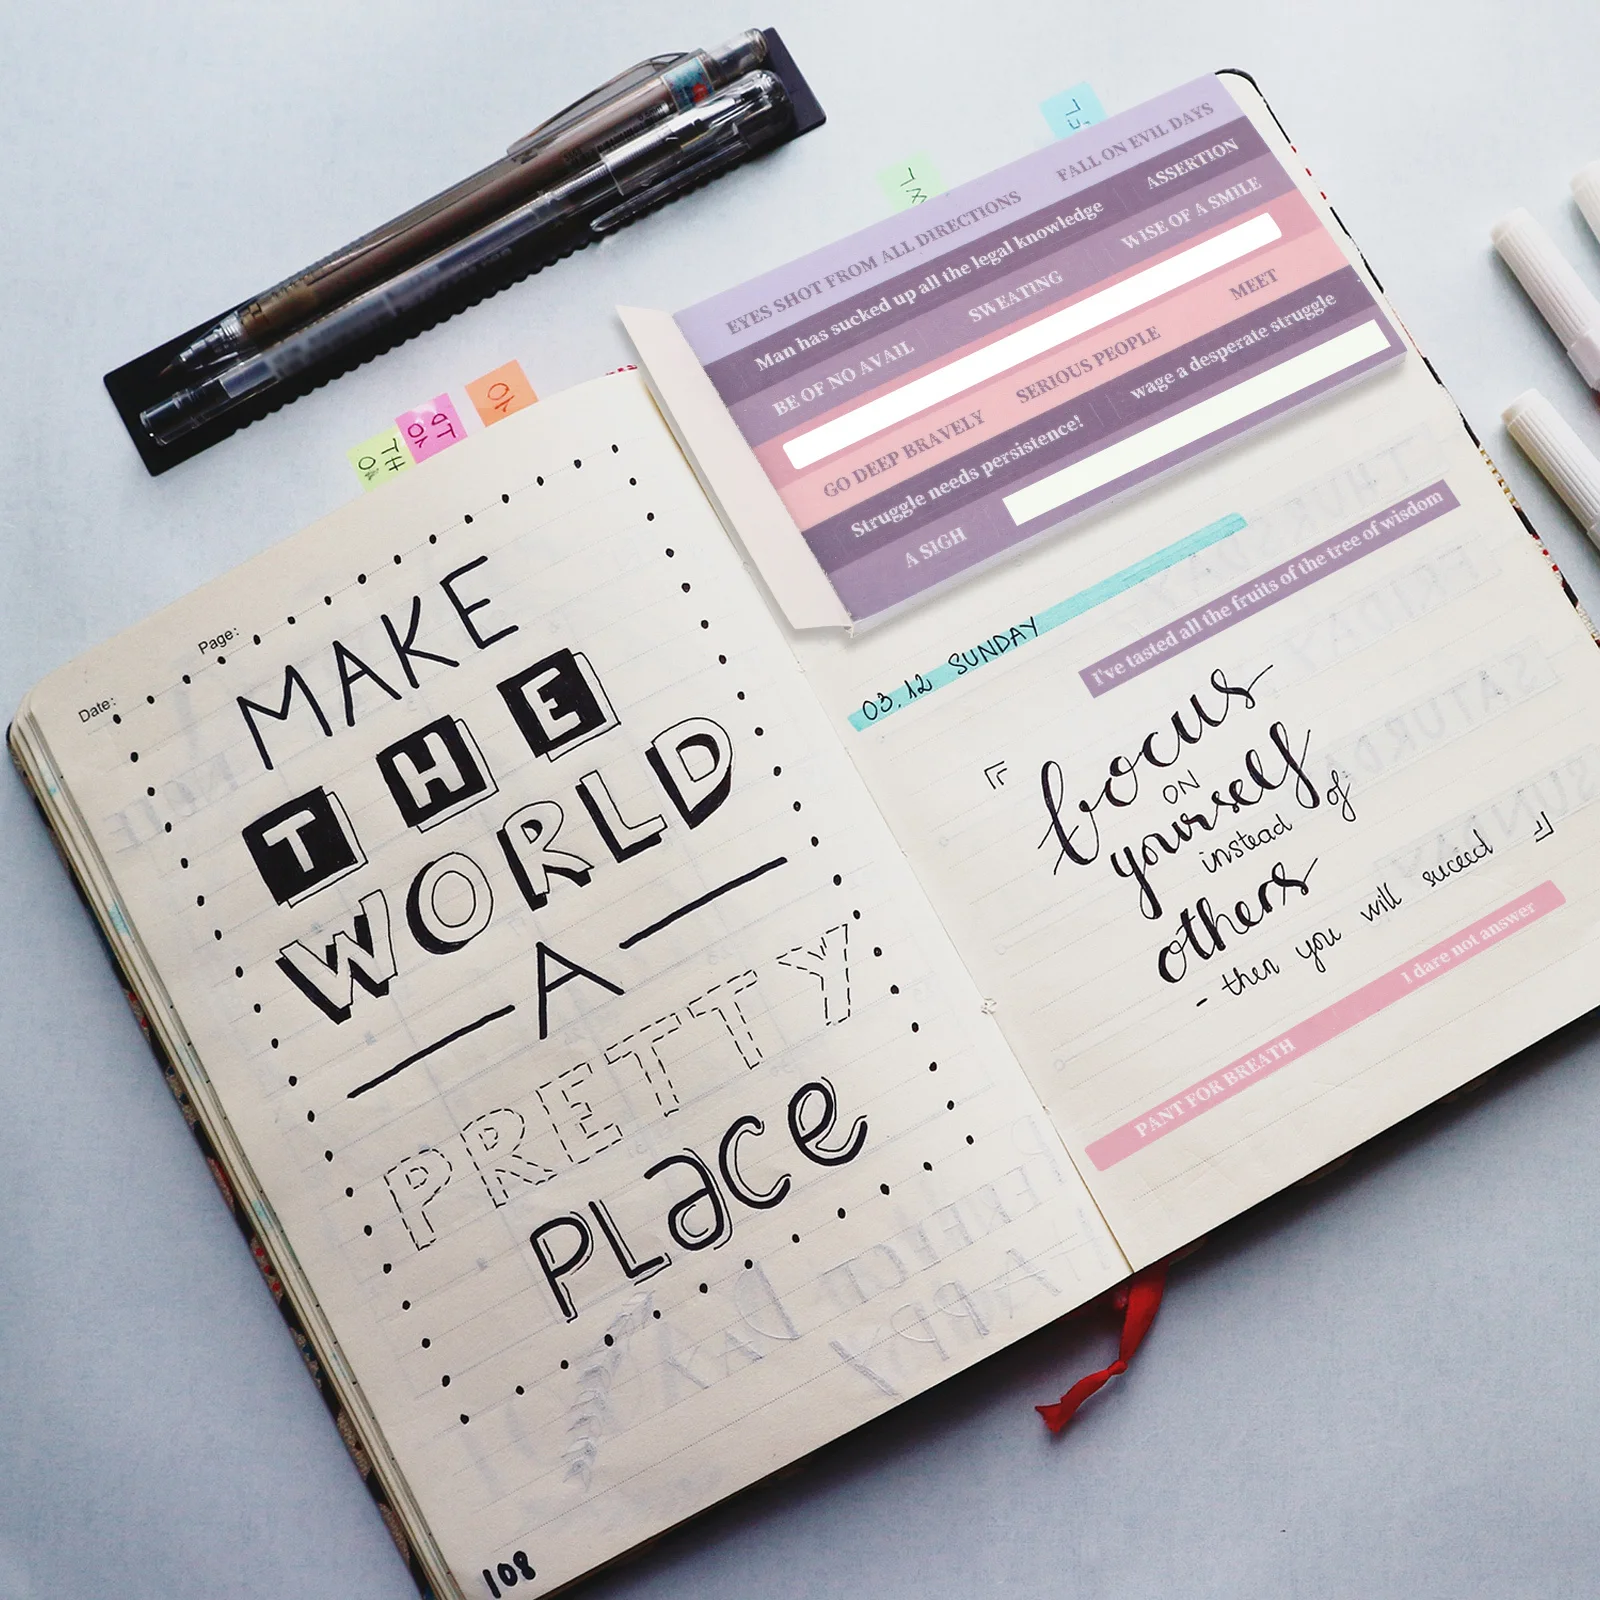 Date:
Page:
MAKE
THE
WORLD
A
PRETTY
PLace
108
EYES SHOT FROM ALL DIRECTIONS FALL ON EVIL DAYS
Man has sucked up all the legal knowledge ASSERTION
BE OF NO AVAIL SWEATING WISE OF A SMILE
GO DEEP BRAVELY SERIOUS PEOPLE MEET
Struggle needs persistence! wage a desperate struggle
A SIGH
03.12 SUNDAY
I've tasted all the fruits of the tree of wisdom
focus
ON
yourself
instead of
others
- then you will suceed
I dare not answer
PANT FOR BREATH